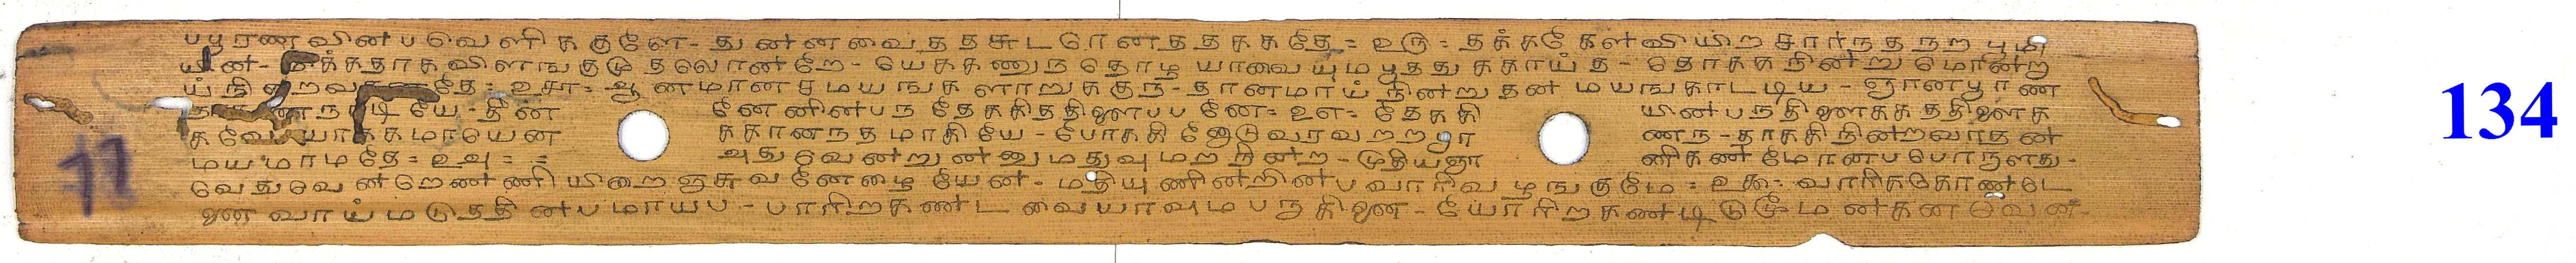 பபூரண வின்ப வெளிககுளே- துன்னவைத்தசுடரொனததககதே = உரு = தக்க கேள்வியிற சார்ந்த நற பூமி
யின்- க்கதாக விளஙகுமுதலொன்றே- யெககணுந தொழ யாவையும பூத்து க்காய்த- தொககநின்று மொன்று
ய் நின்றவ தே = உசா = ஆனமான சமயஙகளாறுககுந- தானமாய் நின்று தன் மயஙகாடடிய- ஞானபூரண
நாடியே- தீன னேனின்பந தேககித்திளைபப னே = உள = தேககி யின்பநதிளைககத்திளைக
கவே யாக்கமாயென ககானநதமாகியே- போககினோடுவரவறறதா ணந- தாககிநின்றவாதன்
மயமாமதே = உஅ = = அதுவென்றுன்னுமதுவுமற நின்ற- முதியஞா னிகண் மோனபபொருளது-
வேதுவென்றெண்ணி யிறைஞசுவனேழையேன்- மதியுணின்றின்பவாரிவழஙகுமே = உகூ = வாரிககொண்டெ
னை வாய்மடுத்தின்பமாயப- பாரிறகண்டவையாவும பருகினை- யோரிறகண்டிடுமூமன்கனவென்-
134
77